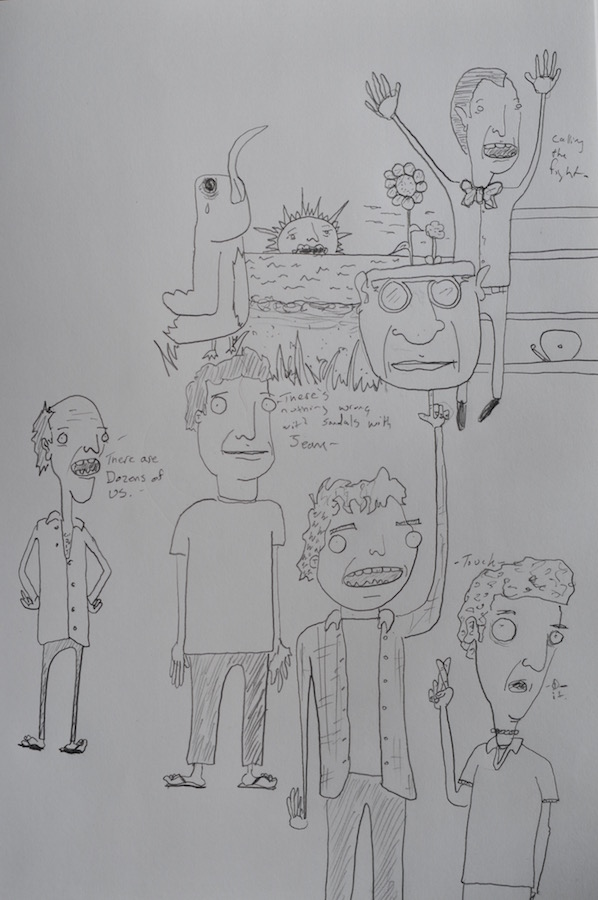 Calling
the
fight-
-There's
nothing wrong
with sandals with
Jeans-
There are
Dozens of
us.-
-Truck-
it.